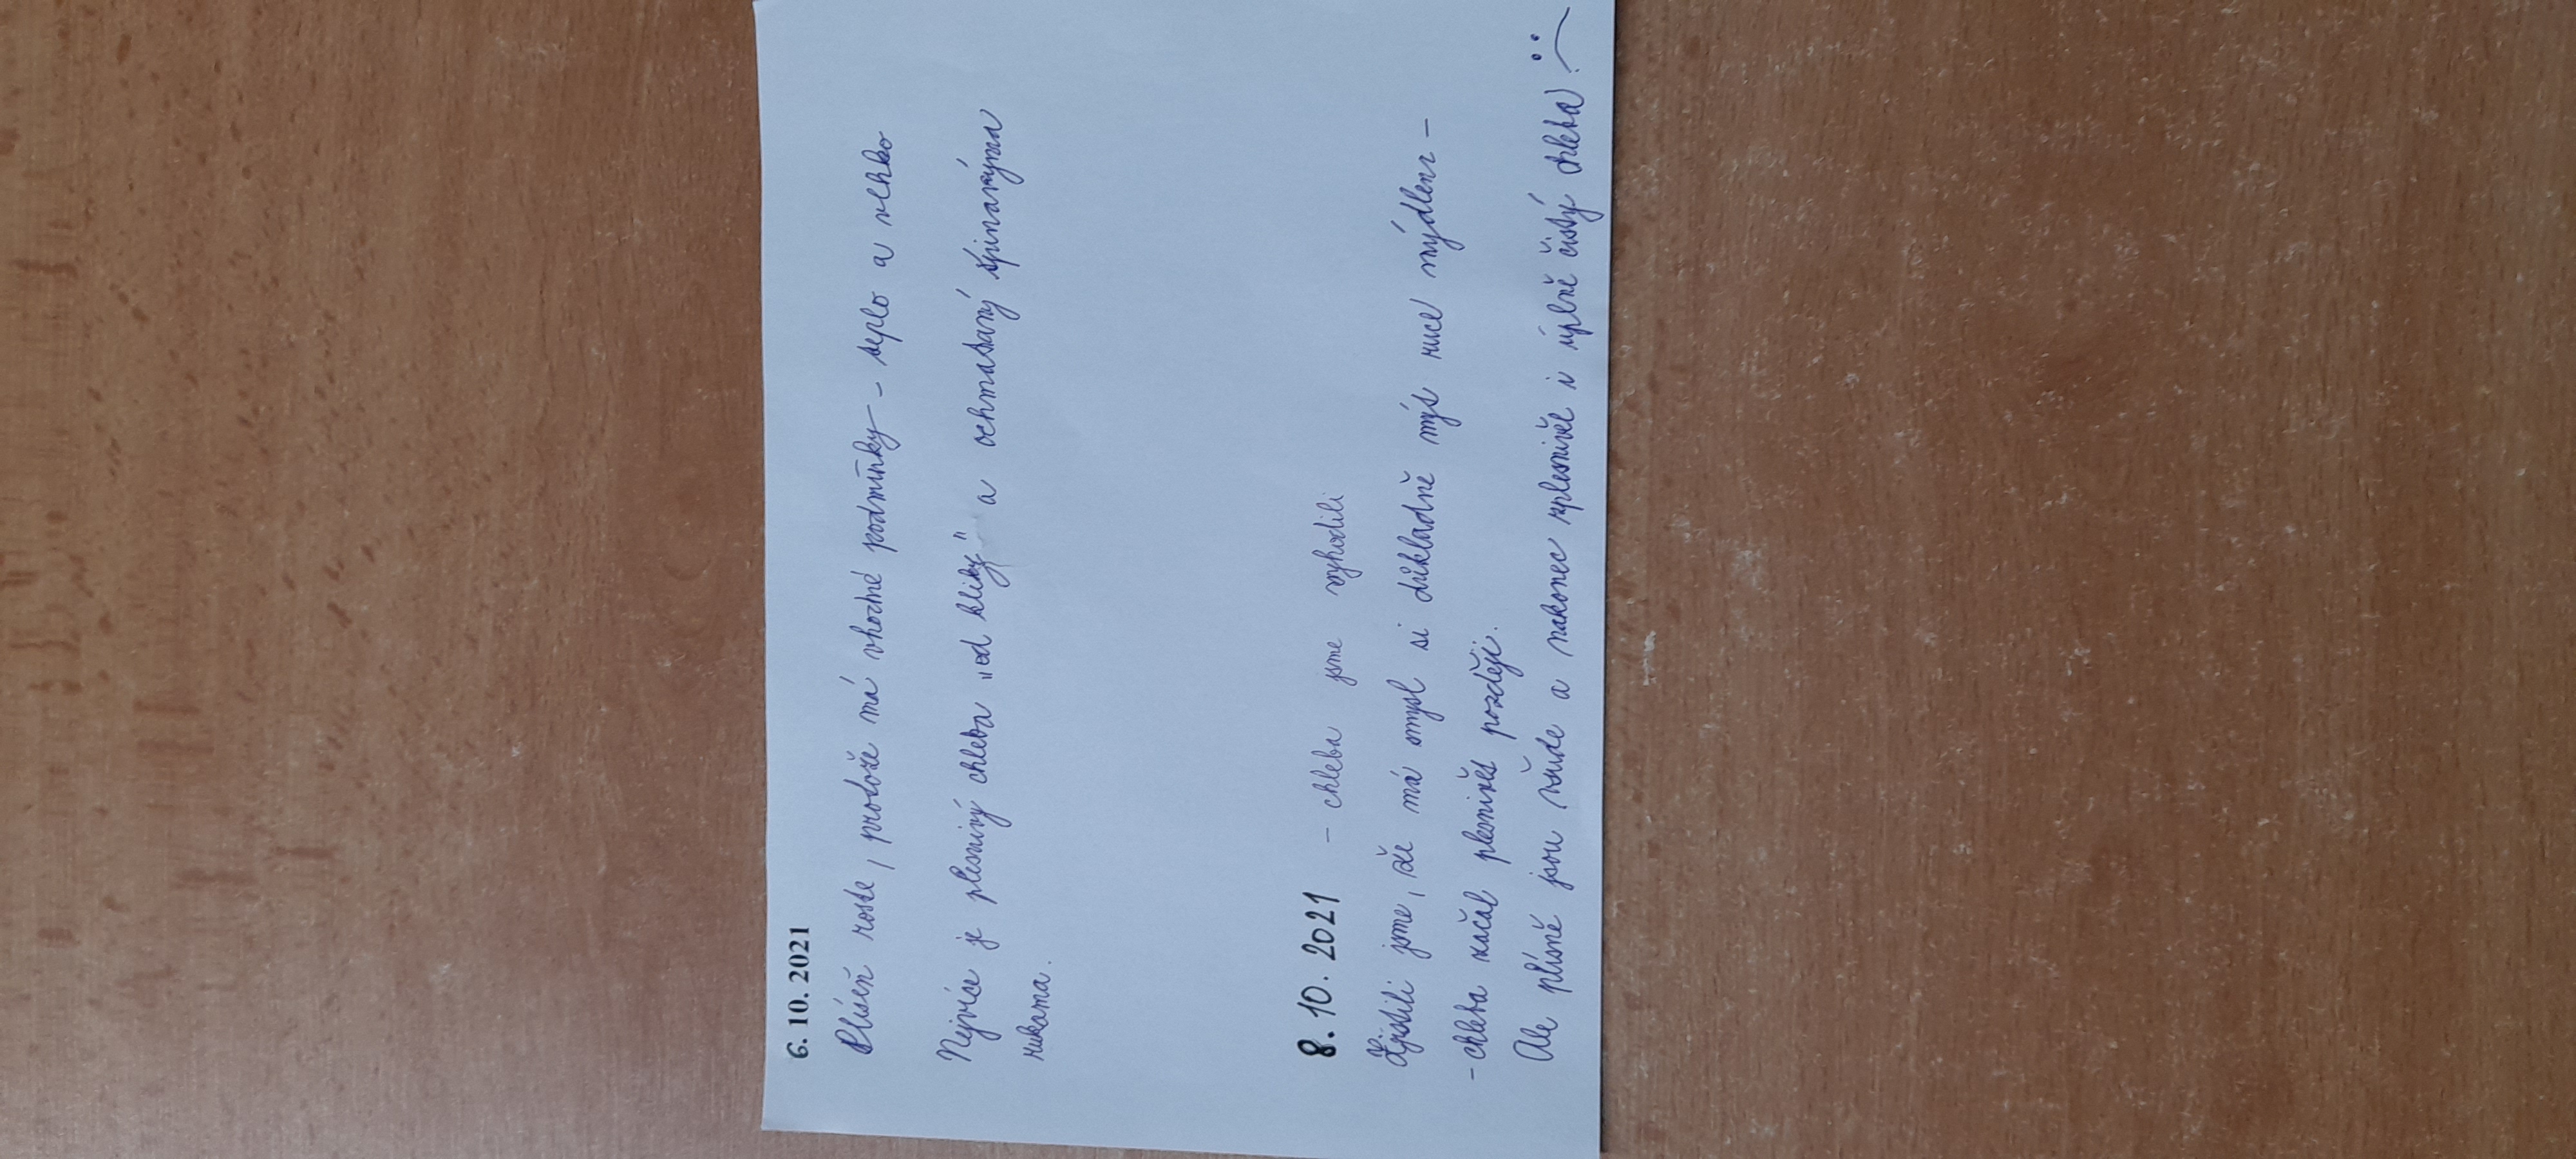 6. 10. 2021
Plíseň roste, protože má vhodné podmínky - teplo a vlhko
Nejvíce je plesnivý chleba „od kliky" a ochmataný špinavýma
rukama.
8. 10. 2021 - chleba jsme vyhodili
Zjistili jsme, že má smysl si důkladně mýt ruce mýdlem -
- chleba začal plesnivět později.
Ale plísně jsou všude a nakonec zplesnivěl i úplně čistý chleba.